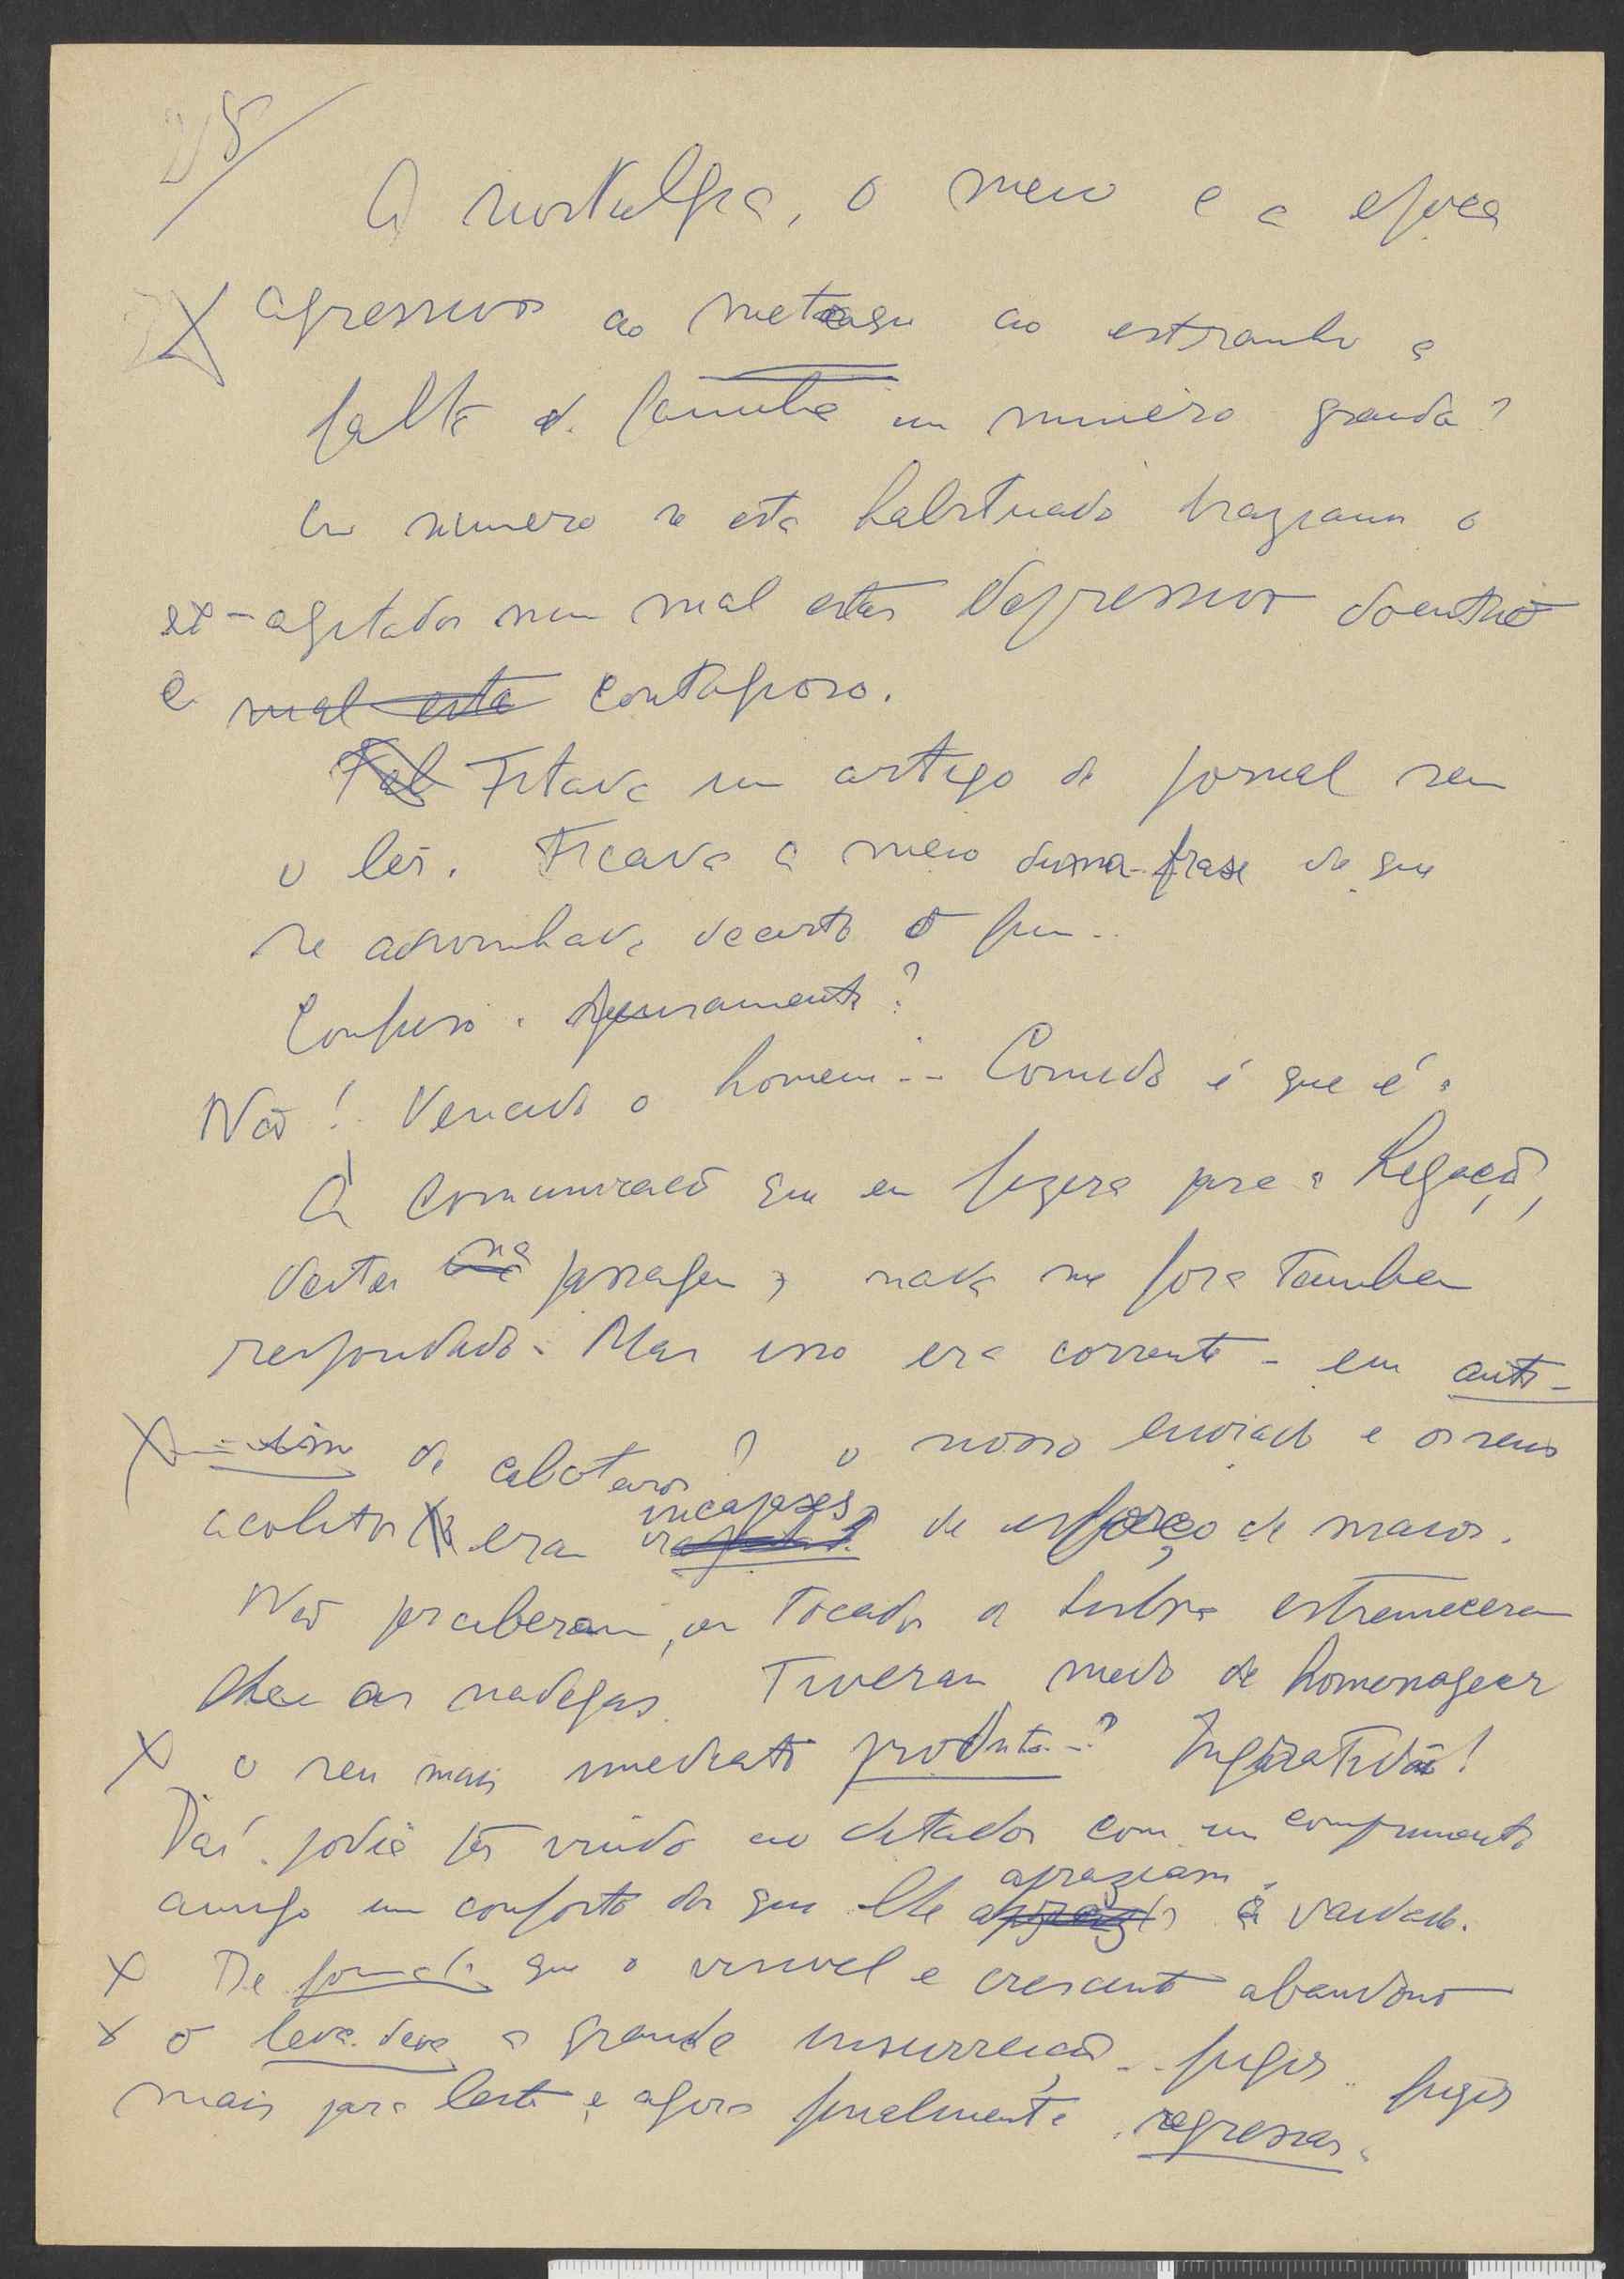 25/
A nostalgia, o meio e a epoca
X agressivos ao meteque ao estranho a
falta de familia em numero grande?
em numero se está habituado traziam o
ex-agitador num mal estar depressivo doentio
e mal esta contagioso.
Fitava um artigo de jornal sem
o ler. Ficava a meio duma frase de que
se adivinhava decerto o fim..
Confuso. Apuramento?
Não! Vencido o homem... Comido é que é.
A comunicação que eu fizera para a Legação,
desta na passagem, nada me fora tambem
respondido. Mas isso era corrente - em
X de cabotinos? o nosso enviado e os seus
acolitos eram incapazes de esforço de maior.
Não perceberam, ou tocados a tremeram
lhe as nadegas. Tiveram medo de homenagear
X o seu mais imediato produto..? Ingratidão!
Daí podia ter vindo ao ditador com um comprimento
amigo um conforto dos que lhe apraziam á vaidade.
X De que o visivel e crescente abandono
X o leva.. a grande insurreição... fugir.. fugir
mais para leste e agora finalmente regressar.